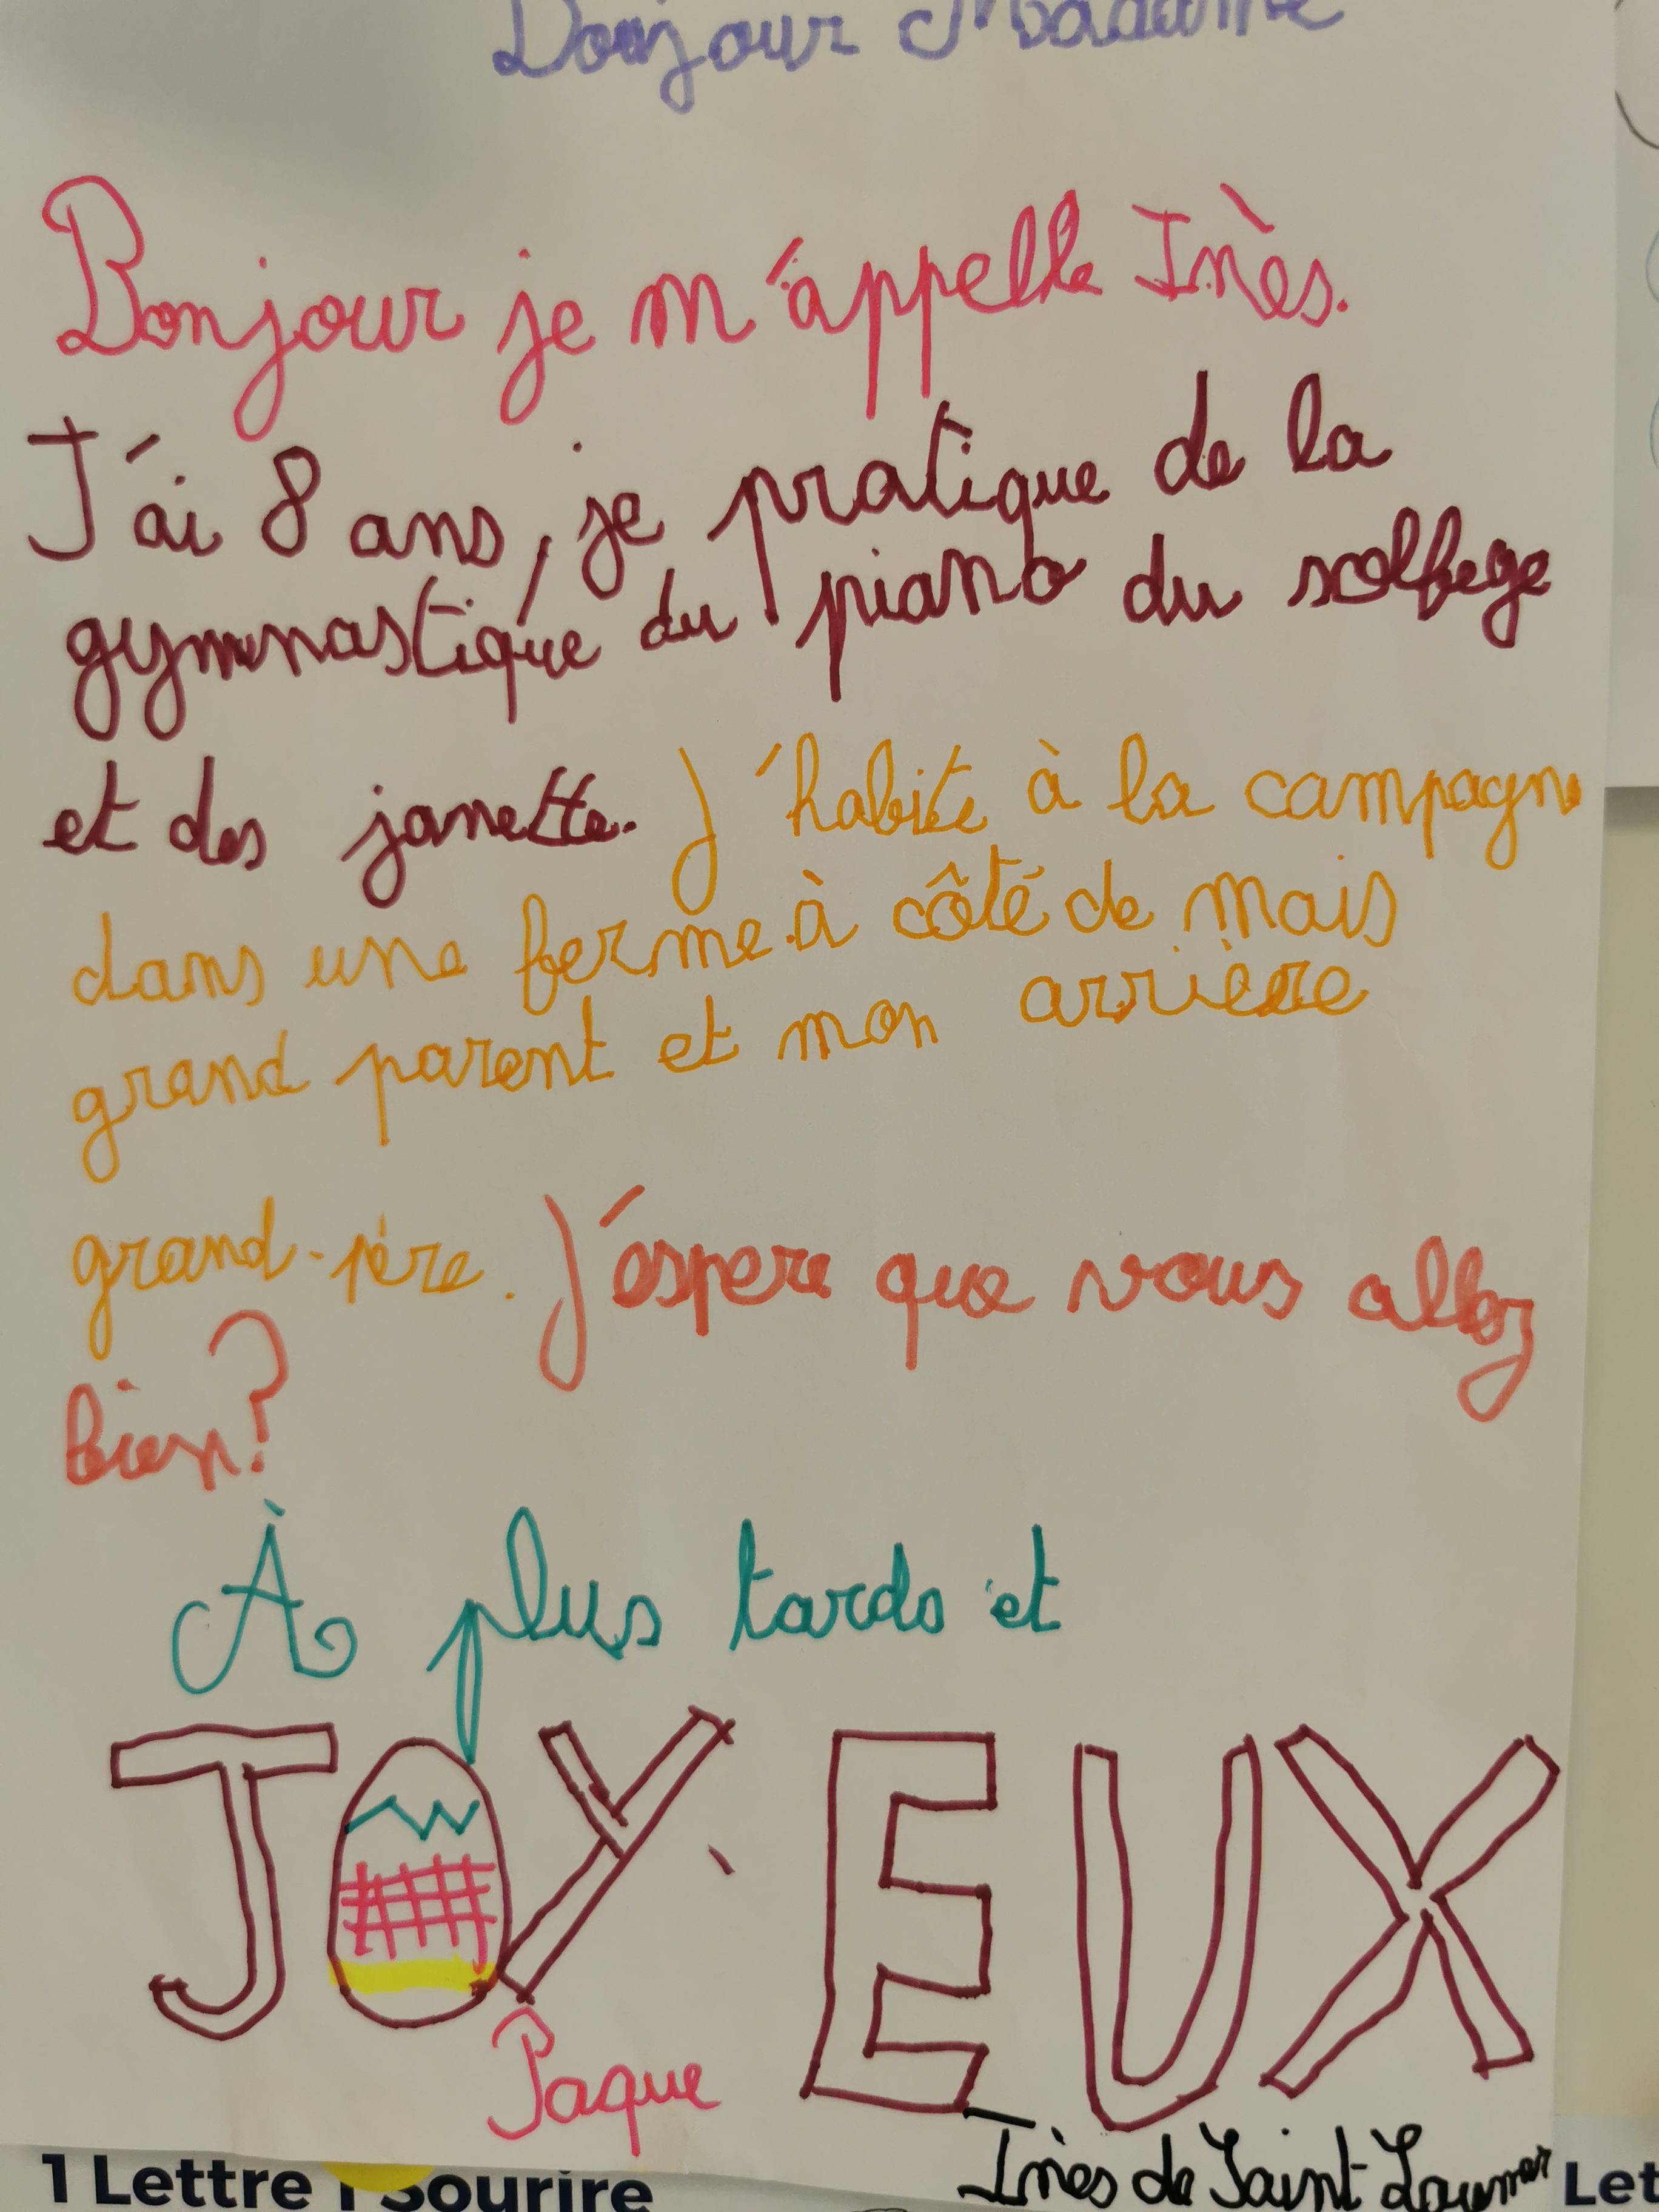 Bonjour Madame
Bonjour je m'appelle Inès.
J'ai 8 ans, je pratique de la
gymnastique du piano du solfege
et des janette. J'habite à la campagn
dans une ferme à côté de mais
grand parent et mon arrière
grand-père. J'éspere que vous allez
bien?
À plus tards et
JOYEUX
Paque
Inès de Saint Laumer
1 Lettre 1 Sourire Let